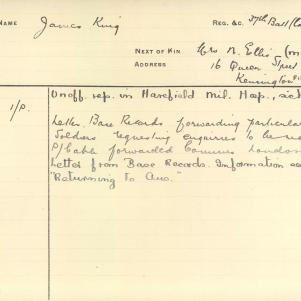 NAME James King REG. &C. 37th Batt (
NEXT OF KIN Mrs N. Ellis (m
ADDRESS 16 Queen Street
Kensington
1/P. Unoff. rep. in Harefield Mil. Hosp., sick
Letter Base Records forwarding particular
Soldiers requesting enquiries to be
P/Cable forwarded Commrs London
Letter from Base Records. Information
"Returning to Aus."